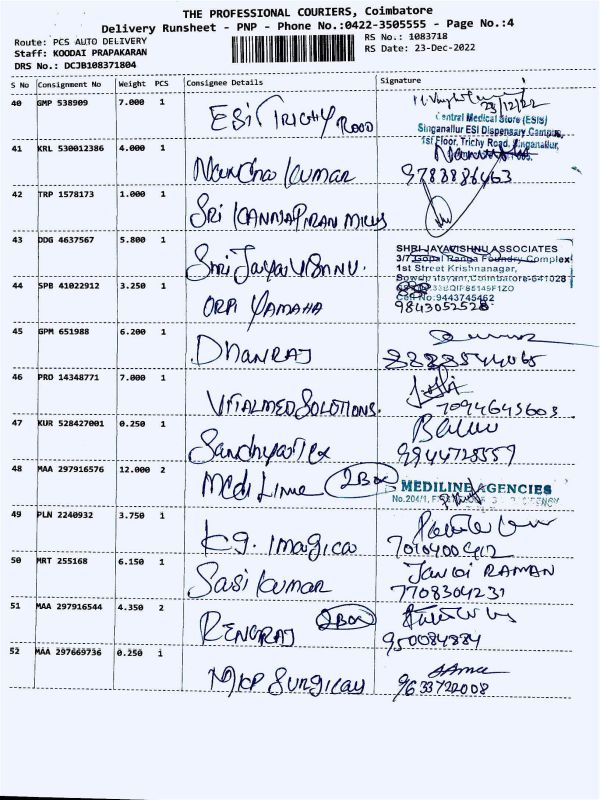 THE PROFESSIONAL COURIERS, Coimbatore
Delivery Runsheet - PNP - Phone No.:0422-3505555 - Page No.:4
Route: PCS AUTO DELIVERY
RS No.: 1083718
Staff: KOODAI PRAPAKARAN
RS Date: 23-Dec-2022
DRS No.: DCJB108371804
S No Consignment No Weight PCS Consignee Details Signature
40 GMP 538909 7.000 1 ESI TRICHY ROAD
23/12/22
Central Medical Store (ESIS)
Singanallur ESI Dispensary Campus,
1st Floor, Trichy Road, Singanallur,
41 KRL 530012386 4.000 1 Nandha Kumar
9783886463
42 TRP 1578173 1.000 1 SRI KANNAPIRAN MILLS
43 DDG 4637567 5.800 1 Shri Jaya Vishnu.
SHRI JAYAVISHNU ASSOCIATES
3/7 Gopal Ranga Foundry Complex
1st Street Krishnanagar,
Coimbatore-641028
Cell No:9443745462
44 SPB 41022912 3.250 1 ORPI YAMAHA
9843052528
45 GPM 651988 6.200 1 DHANRAJ
46 PRO 14348771 7.000 1 VITALMED SOLUTIONS.
7094645603
47 KUR 528427001 0.250 1 Sandhya Tex
9944728559
48 MAA 297916576 12.000 2 Medi Line 2 Box
MEDILINE AGENCIES
No.204/1,
49 PLN 2240932 3.750 1 K.G. Imagica
7010400412
50 MRT 255168 6.150 1 Sasi Kumar
RAMAN
7708304231
51 MAA 297916544 4.350 2 RENGRAJ 2 Box
950084884
52 MAA 297669736 0.250 1 MKP Surgicals
9633722008